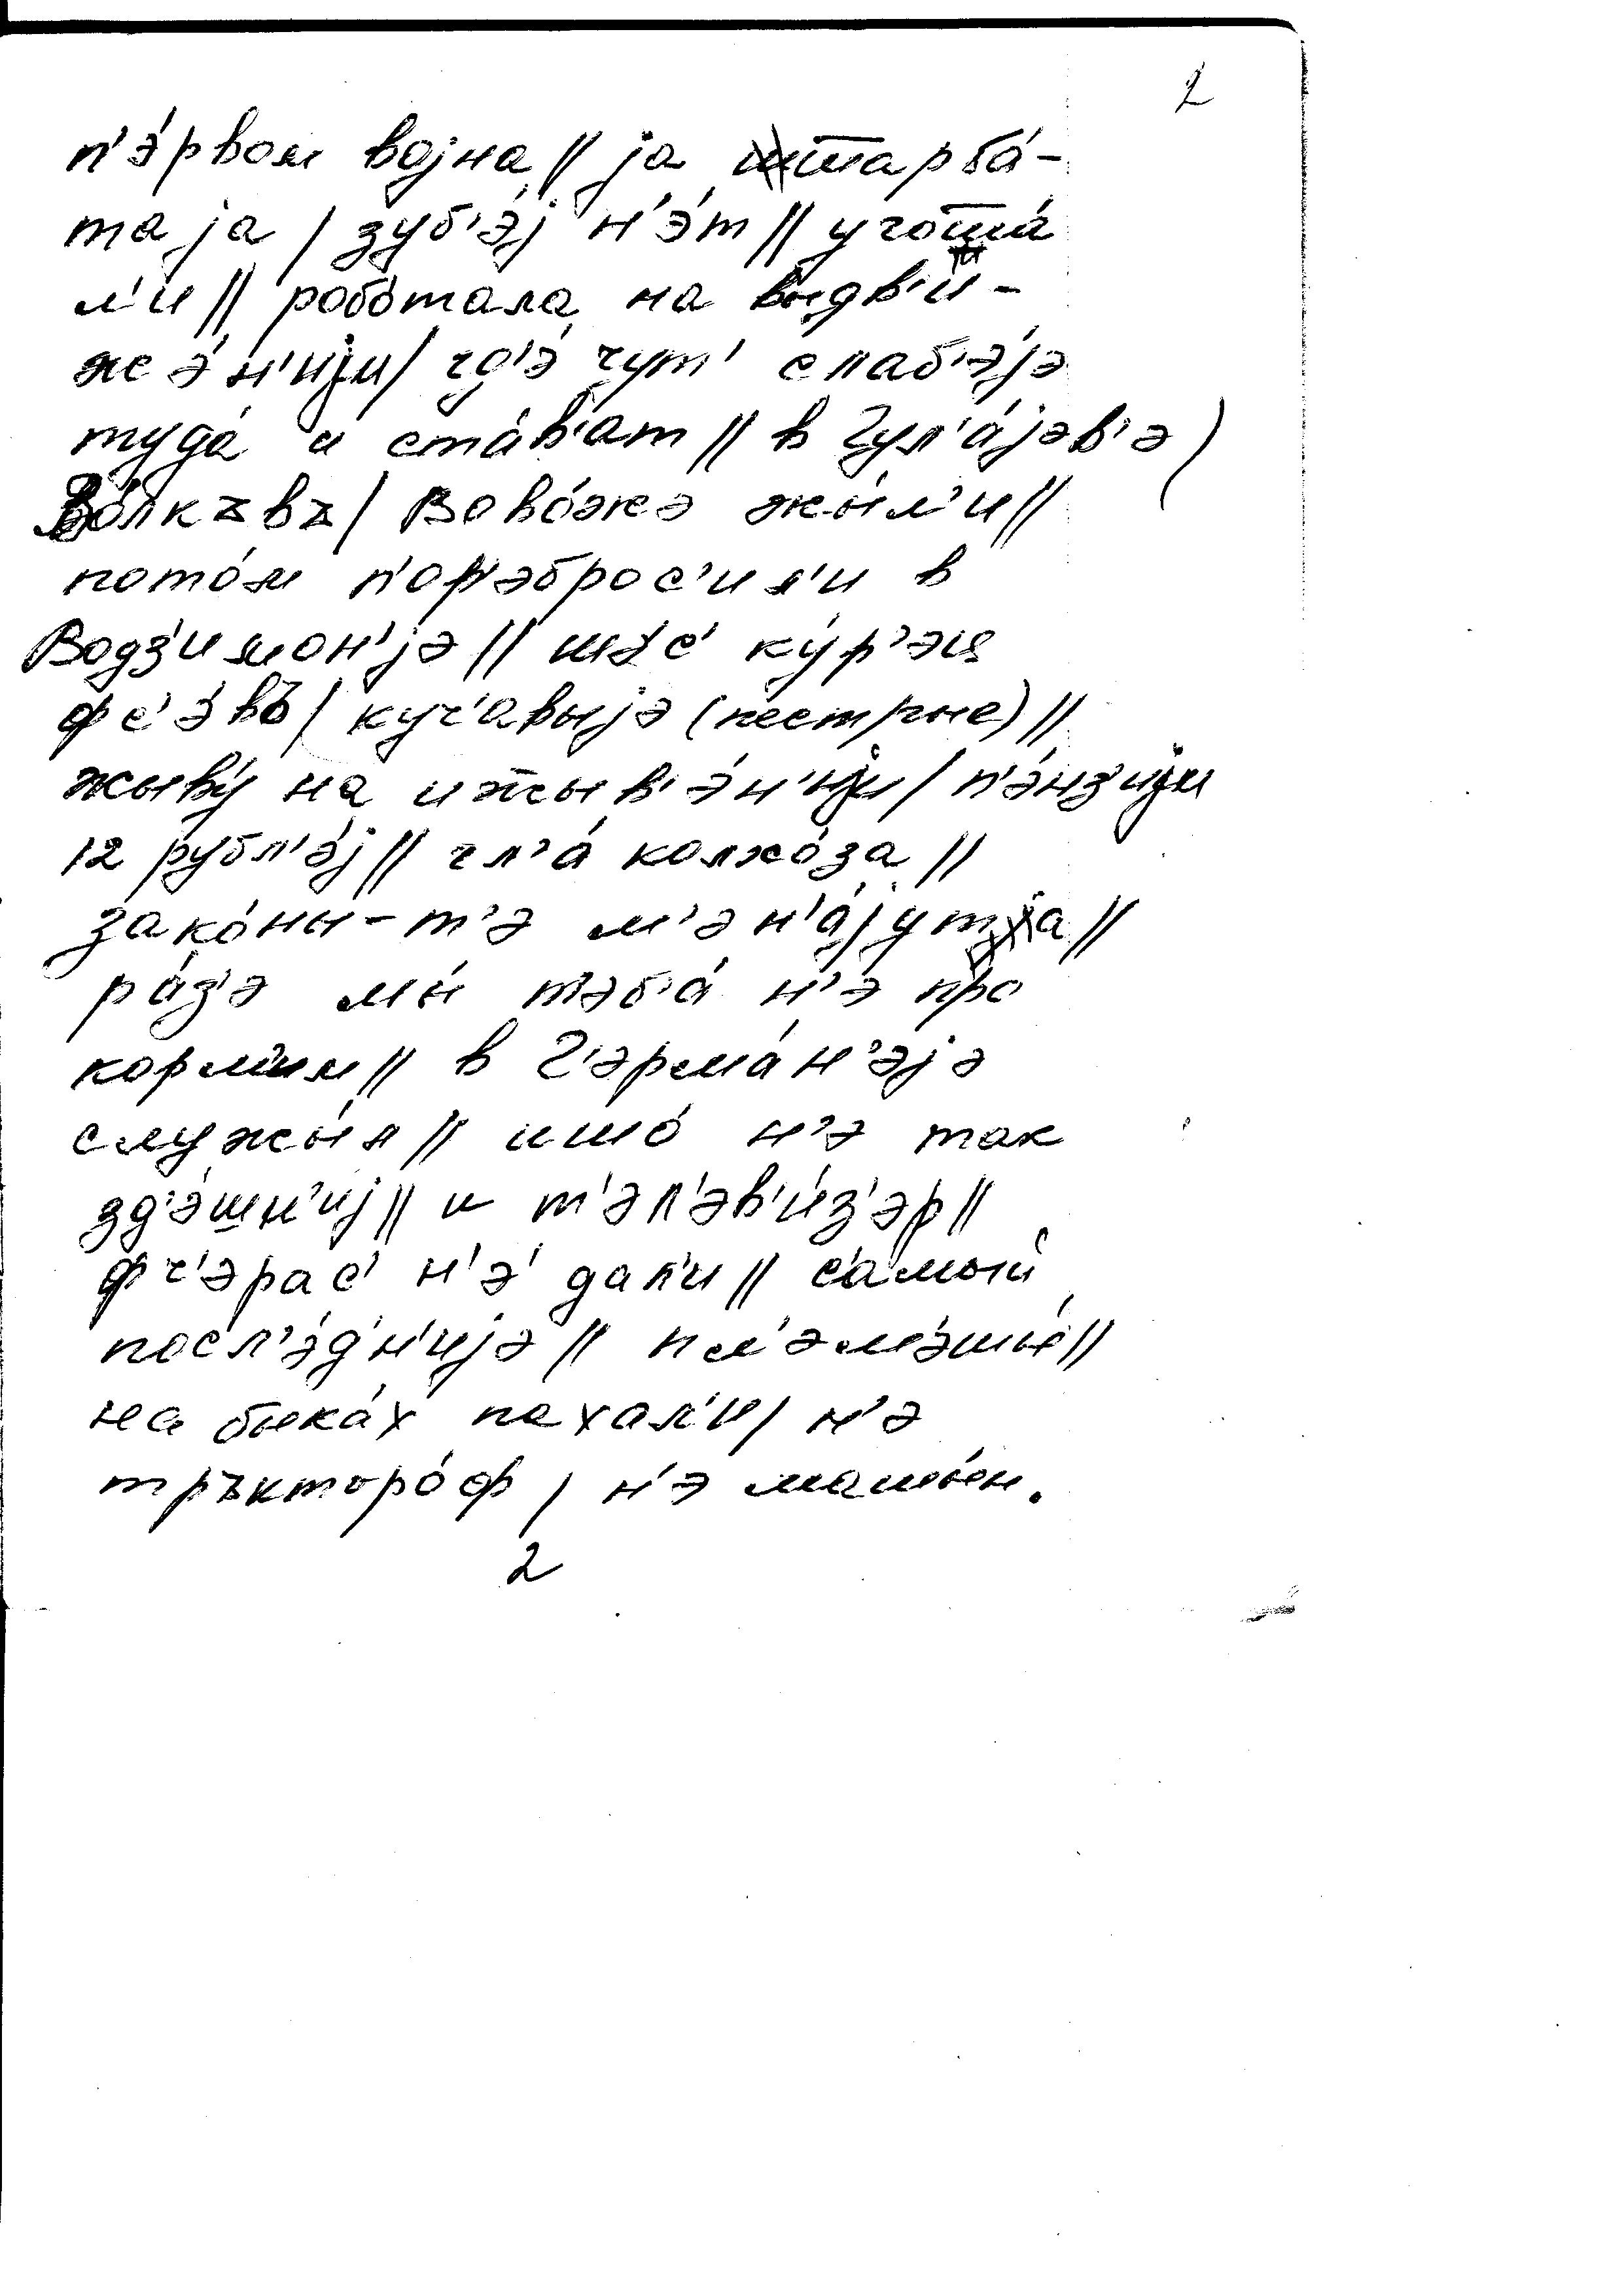 2
п'э́рвом војна // ја ш̅тарба́-
таја / зуб'э́ј н'э́т // угош̅а́
л'и // робо́тала на выдв'и-
жэ́н'ији / гд'э́ чут' слаб'э́јэ
туда́ и ста́в'ат // в Гул'а́јэв'э /
Во́лкъвъ / Вово́жэ жы́л'и //
пото́м п'ор'эброс'ил'и в
Водз'имон'јэ // шэс' ку́р'эц
фс'э́въ / куч'авыјэ (пестрые) //
жыву́ на ижыв'э́н'ији / п'э́нз'ији
12 рубл'э́ј // гл'а́ колхо́за //
зако́ны-т'э м'эн'а́јутца //
ра́з'э мы́ т'эб'а́ н'э про
корм'им // в Г'эрма́н'эјэ
служы́л // ишо́ н'э так
зд'э́шн'иј // и т'эл'эв'и́з'эр //
фч'эрас' н'э́ дал'и // са́мый
посл'э́дн'ијэ // пл'эм'эшы́ //
на быка́х пахал'и / н'э
тръкторо́ф / н'э машы́н.
2